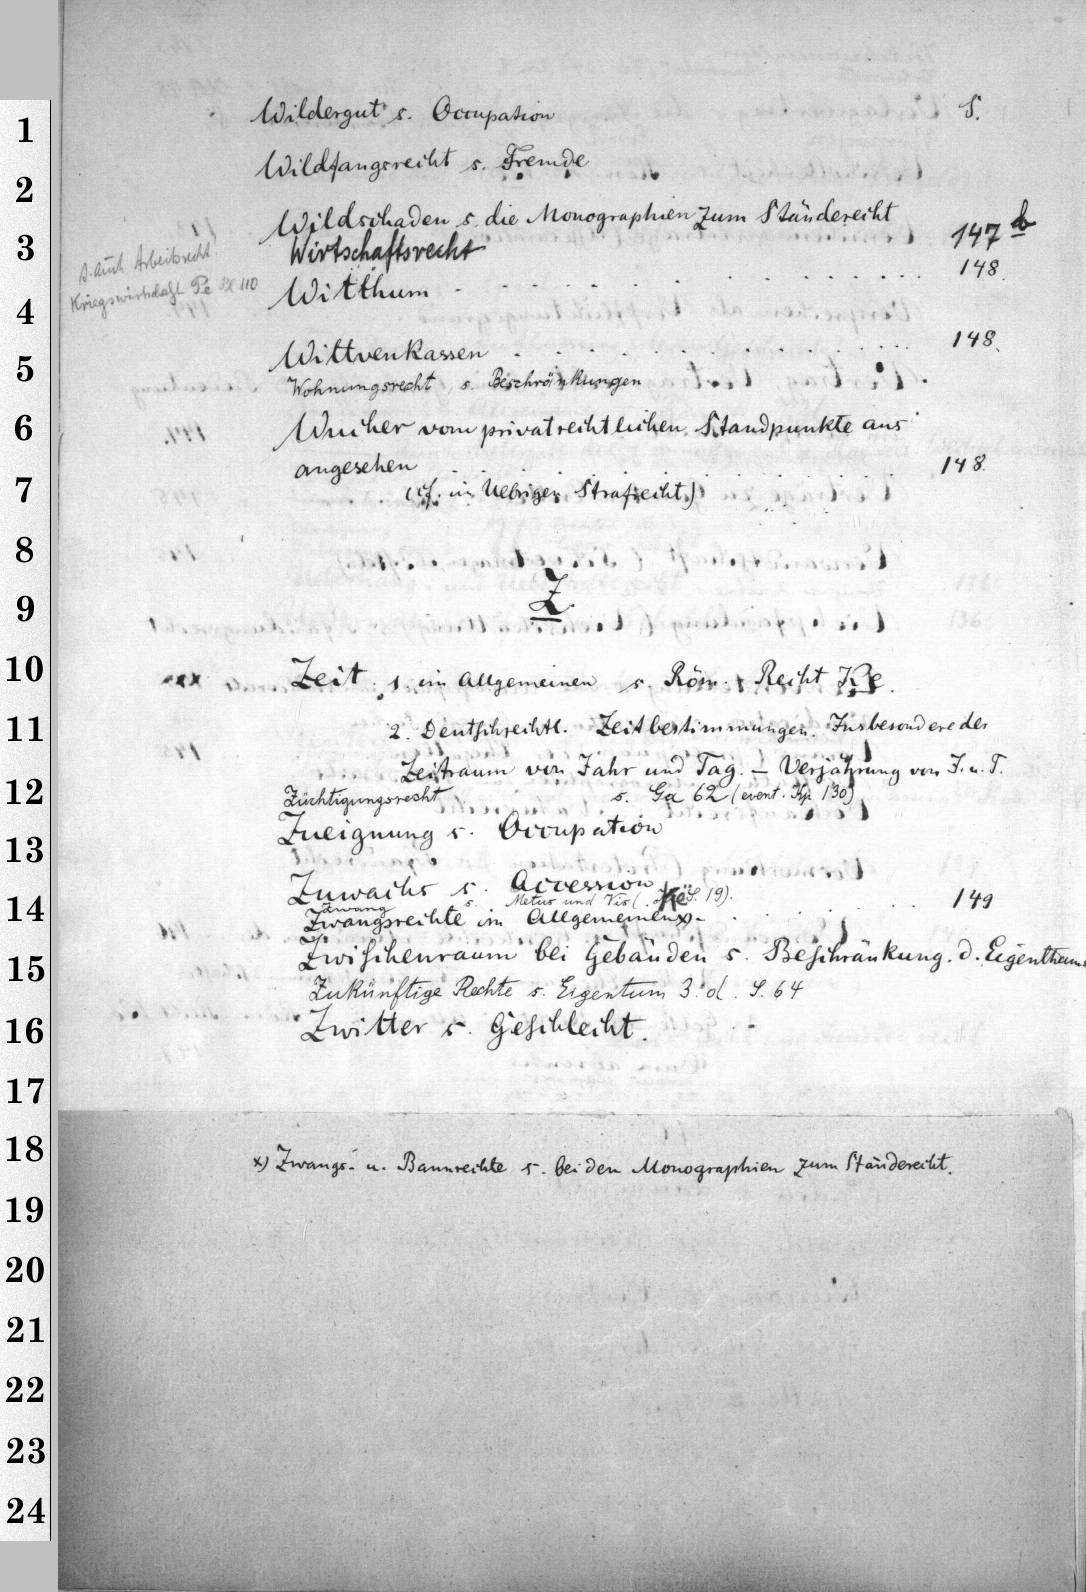 Wildergut s. Occupation S.
Wildfangsrecht s. Fremde
Wildschaden s. die Monographien zum Ständerecht
Wirtschaftsrecht 147 b
s. auch Arbeitsrecht
Kriegswirtschaft Pe 110
Witthum . . . . . . . . . . 148.
Wittvenkassen . . . . . . . . . . 148.
Wohnungsrecht s. Beschränkungen
Wucher vom privatrechtlichen Standpunkte aus
angesehen . . . . . . . . . . 148.
(cf. im Uebrigen Strafrecht.)
Z
Zeit. 1. im Allgemeinen s. Röm. Recht Ke.
2. Deutschrechtl. Zeitbestimmungen. Insbesondere der
Zeitraum von Jahr und Tag. – Verjährung von J. u. T.
Züchtigungsrecht s. Ga 62 (event. Kp 130)
Zueignung s. Occupation
Zuwachs s. Accession
Zwang s. Metus und Vis ( Ke S. 19).
Zwangsrechte im Allgemeinen x) . . . . . 149
Zwischenraum bei Gebäuden s. Beschränkung. d. Eigenthums
Zukünftige Rechte s. Eigentum 3. d. S. 64
Zwitter s. Geschlecht.
x) Zwangs- u. Bannrechte s. bei den Monographien zum Ständerecht.
1
2
3
4
5
6
7
8
9
10
11
12
13
14
15
16
17
18
19
20
21
22
23
24